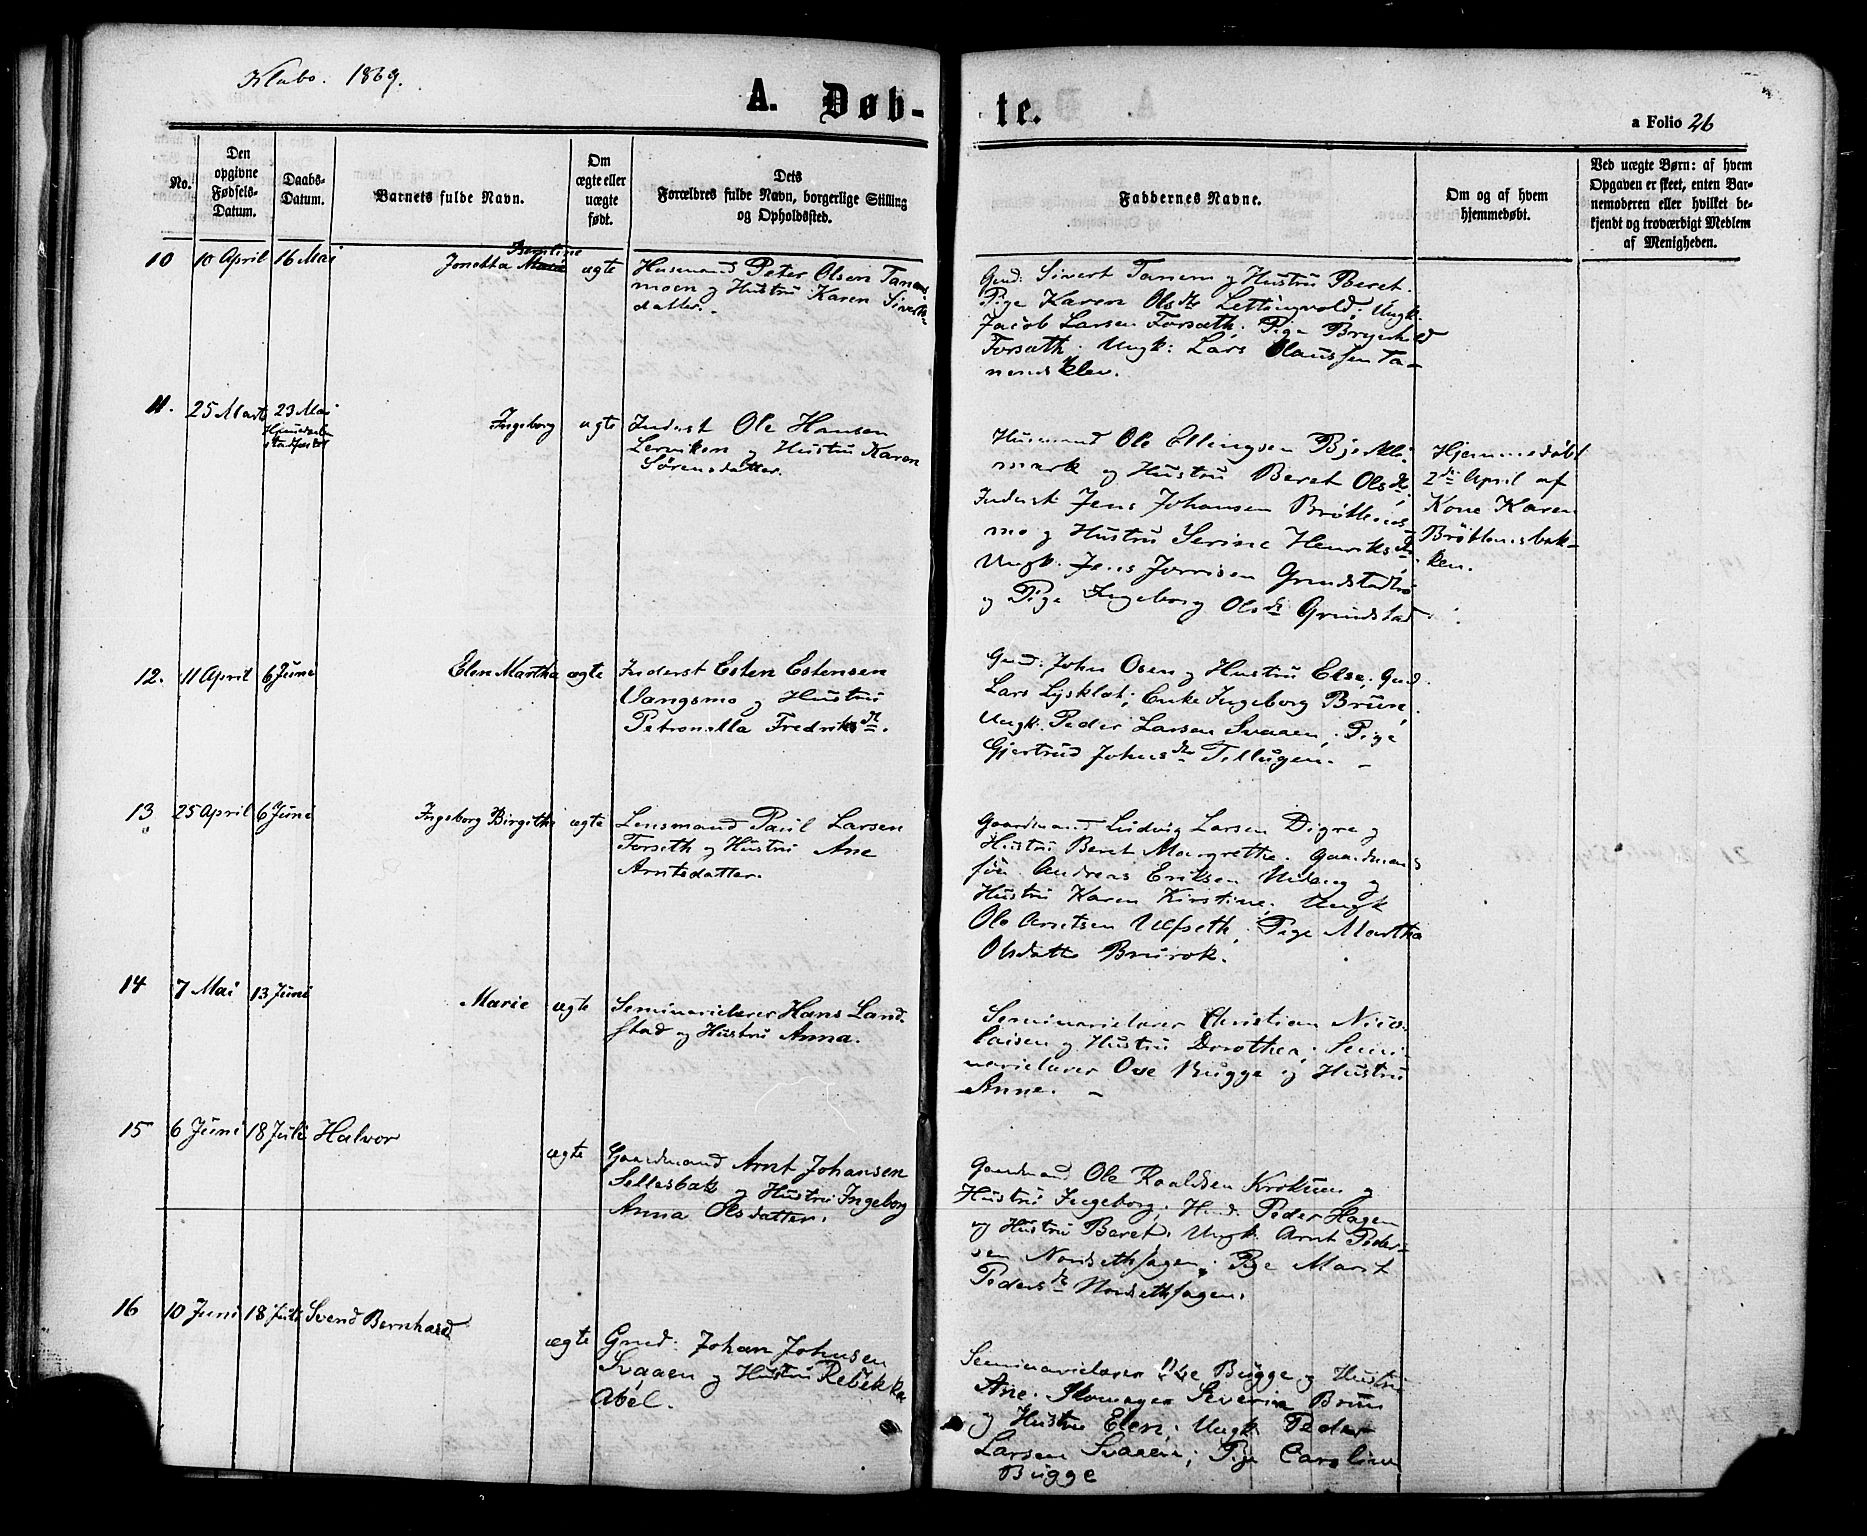 Klæbo. 1869.
A. Døb-
te.
a Folio 26
No.
Den
opgivne
Fødsels-
Datum.
Daabs-
Datum.
Barnets fulde Navn.
Om
ægte eller
uægte
født.
Dets
Forældres fulde Navn, borgerlige Stilling
og Opholdssted.
Faddernes Navne.
Om og af hvem
hjemmedøbt.
Ved uægte Børn: af hvem
Opgaven er skeet, enten Bar-
nemoderen eller hvilket be-
kjendt og troværdigt Medlem
af Menigheden.
10
10 April
16 Mai
Jonetta
ægte
Husmand Peter Olsen Tanems
moen og Hustru Karen Siverts-
datter.
Gmd: Sivert Tanem og Hustru Beret.
Pige Karen Olsdtr Lettingvold; Ungk.
Jacob Larsen Forsæth. Pige Bryenhild
Forsæth. Ungk: Lars Claussen Ta-
nemsklev.
11.
25 Marts
23 Mai
Ingeborg
ægte
Inderst Ole Hansen
Lerviken og Hustru Karen
Sørensdatter.
Husmand Ole Ellingsen Bjerkli-
mark og Hustru Beret Olsdtr.
Inderst Jens Johansen Brøttems-
mo og Hustru Serine Henriksdtr.
Ungk. Jens Jorrisen Grendstadtrø
og Pige Ingeborg Olsdtr Grendstad
Hjemmedøbt
2den April af
Kone Karen
Brøttemsbak-
ken.
12.
11 April
6 Juni
Elen Martha
ægte
Inderst Esten Estensen
Vangsmo og Hustru
Petronella Fredriksdtr.
Gmd: John Osen og Hustru Else; Gmd.
Lars Lysklæt; Enke Ingeborg Bruun;
Ungk. Peder Larsen Svaaen; Pige
Gjertrud Johnsdtr Tellugen. -
13
25 April
6 Juni
Ingeborg Birgitha
ægte
Lensmand Paul Larsen
Forseth og Hustru Ane
Arntsdatter.
Gaardmand Ludvig Larsen Digre og
Hustru Beret Margrethe. Gaardmand
Andreas Eriksen og
Hustru Karen Kirstine; Ungk
Ole Arntsen Ulfseth; Pige Martha
Olsdatter Brurok.
14
7 Mai
13 Juni
Marie
ægte
Seminarielærer Hans Land-
stad og Hustru Anna.
Seminarielærer Christian Nico-
laisen og Hustru Dorothea; Semi-
narielærer Ove Bugge og Hustru
Anne. -
15
6 Juni
18 Juli
Halvor
ægte
Gaardmand Arnt Johansen
Sellesbak og Hustru Ingeborg
Anna Olsdatter.
Gaardmand Ole Roaldsen Krokum og
Hustru Ingeborg; Hmd. Peder Hagen
og Hustru Beret. Ungk. Arnt Peder-
sen Nordsethhagen; Pige Marit
Pedersdtr Nordsethhagen.
16
10 Juni
18 Juli
Svend Bernhard
ægte
Gmd: Johan Johnsen
Svaaen og Hustru Rebekka
Abel.
Seminarielærer Ove Bugge og Hustru
Ane. Skomager Severin Bruun
og Hustru Elen; Ungk. Peder
Larsen Svaaen; Pige Caroline
Bugge